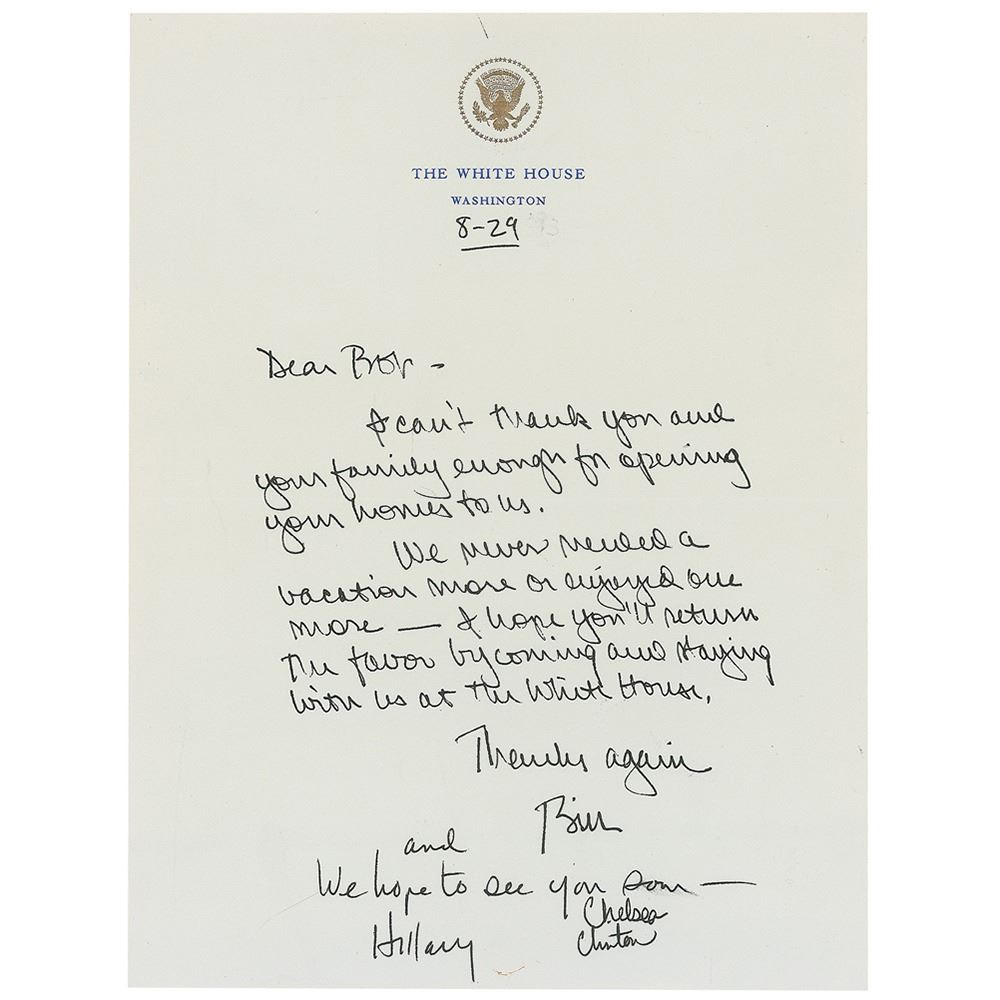 THE WHITE HOUSE
WASHINGTON
8-29 '93
Dear Bob -
I can't thank you and
your family enough for opening
your homes to us.
We never needed a
vacation more or enjoyed one
more — I hope you'll return
the favor by coming and staying
with us at the White House.
Thanks again
Bill
and
We hope to see you soon —
Hillary
Chelsea
Clinton